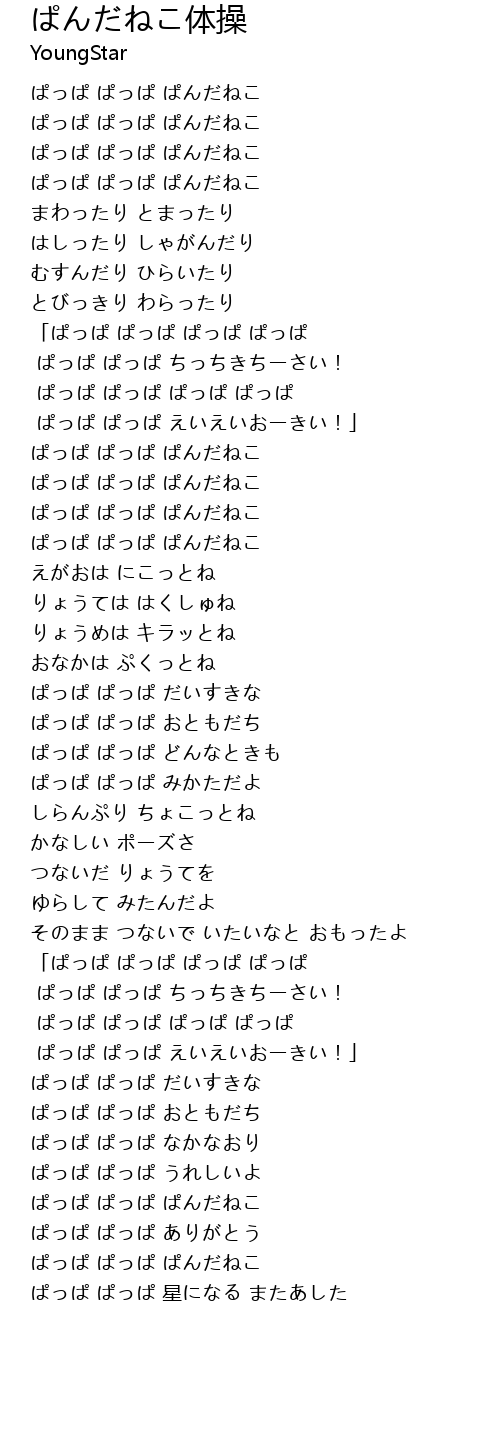 ぱんだねこ体操
YoungStar
ぱっぱ ぱっぱ ぱんだねこ
ぱっぱ ぱっぱ ぱんだねこ
ぱっぱ ぱっぱ ぱんだねこ
ぱっぱ ぱっぱ ぱんだねこ
まわったり とまったり
はしったり しゃがんだり
むすんだり ひらいたり
とびっきり わらったり
「ぱっぱ ぱっぱ ぱっぱ ぱっぱ
ぱっぱ ぱっぱ ちっちきちーさい！
ぱっぱ ぱっぱ ぱっぱ ぱっぱ
ぱっぱ ぱっぱ えいえいおーきい！」
ぱっぱ ぱっぱ ぱんだねこ
ぱっぱ ぱっぱ ぱんだねこ
ぱっぱ ぱっぱ ぱんだねこ
ぱっぱ ぱっぱ ぱんだねこ
えがおは にこっとね
りょうては はくしゅね
りょうめは キラッとね
おなかは ぷくっとね
ぱっぱ ぱっぱ だいすきな
ぱっぱ ぱっぱ おともだち
ぱっぱ ぱっぱ どんなときも
ぱっぱ ぱっぱ みかただよ
しらんぷり ちょこっとね
かなしい ポーズさ
つないだ りょうてを
ゆらして みたんだよ
そのまま つないで いたいなと おもったよ
「ぱっぱ ぱっぱ ぱっぱ ぱっぱ
ぱっぱ ぱっぱ ちっちきちーさい！
ぱっぱ ぱっぱ ぱっぱ ぱっぱ
ぱっぱ ぱっぱ えいえいおーきい！」
ぱっぱ ぱっぱ だいすきな
ぱっぱ ぱっぱ おともだち
ぱっぱ ぱっぱ なかなおり
ぱっぱ ぱっぱ うれしいよ
ぱっぱ ぱっぱ ぱんだねこ
ぱっぱ ぱっぱ ありがとう
ぱっぱ ぱっぱ ぱんだねこ
ぱっぱ ぱっぱ 星になる またあした